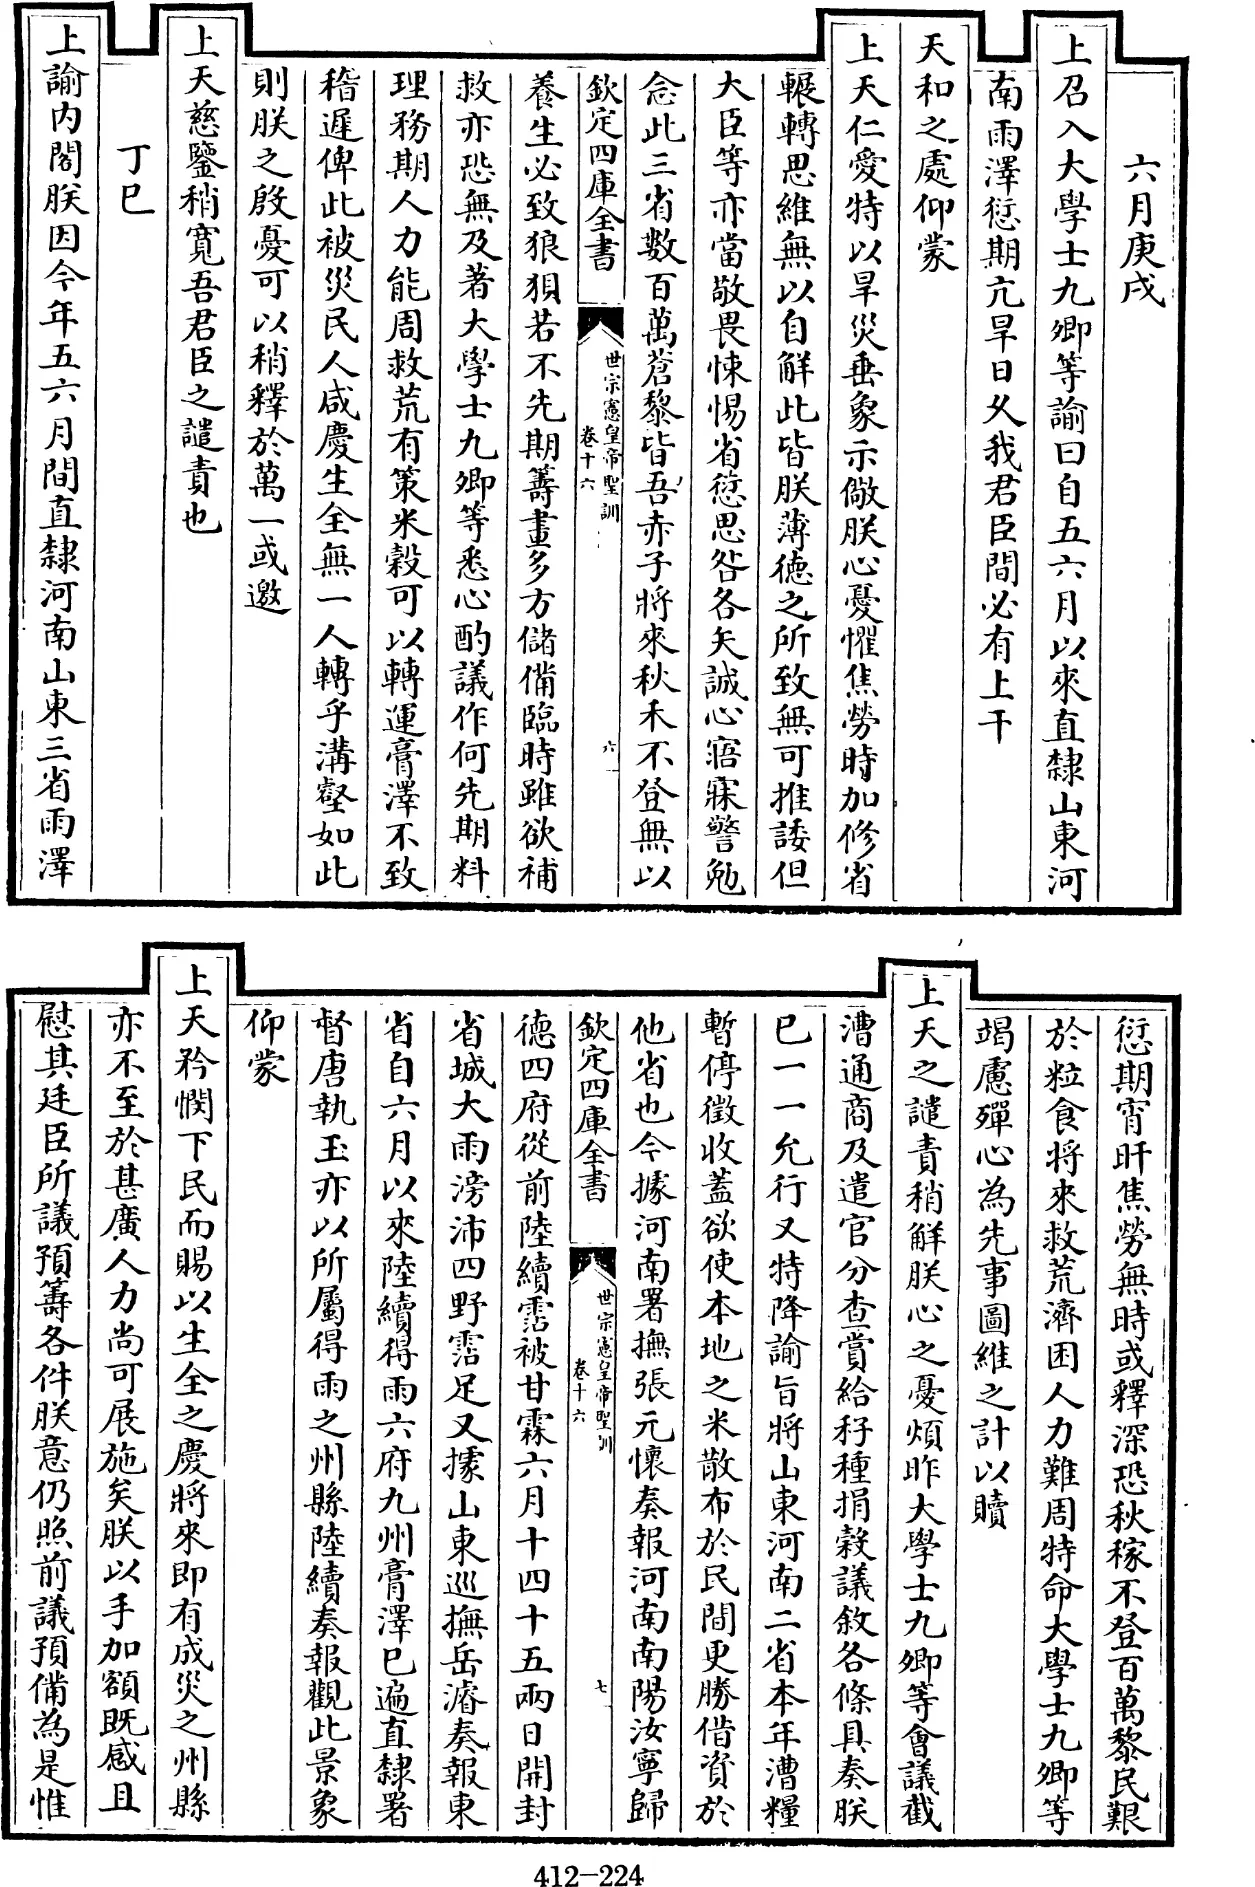 六月庚戌
上召入大學士九卿等諭曰自五六月以來直隸山東河
南雨澤愆期亢旱日久我君臣間必有上干
天和之處仰蒙
上天仁愛特以旱災垂象示儆朕心憂懼焦勞時加修省
輾轉思維無以自解此皆朕薄德之所致無可推諉但
大臣等亦當敬畏悚惕省愆思咎各矢誠心寤寐警勉
念此三省數百萬蒼黎皆吾赤子將來秋禾不登無以
欽定四庫全書
世宗憲皇帝聖訓
卷十六
六
養生必致狼狽若不先期籌畫多方儲備臨時雖欲補
救亦恐無及著大學士九卿等悉心酌議作何先期料
理務期人力能周救荒有策米穀可以轉運膏澤不致
稽遲俾此被災民人咸慶生全無一人轉乎溝壑如此
則朕之殷憂可以稍釋於萬一或邀
上天慈鑒稍寬吾君臣之譴責也
丁巳
上諭內閣朕因今年五六月間直隸河南山東三省雨澤
愆期宵旰焦勞無時或釋深恐秋稼不登百萬黎民艱
於粒食將來救荒濟困人力難周特命大學士九卿等
竭慮殫心為先事圖維之計以贖
上天之譴責稍解朕心之憂煩昨大學士九卿等會議截
漕通商及遣官分查賞給籽種捐穀議敘各條具奏朕
已一一允行又特降諭旨將山東河南二省本年漕糧
暫停徵收蓋欲使本地之米散布於民間更勝借資於
他省也今據河南署撫張元懷奏報河南南陽汝寧歸
欽定四庫全書
世宗憲皇帝聖訓
卷十六
七
德四府從前陸續霑被甘霖六月十四十五兩日開封
省城大雨滂沛四野霑足又據山東巡撫岳濬奏報東
省自六月以來陸續得雨六府九州膏澤已遍直隸署
督唐執玉亦以所屬得雨之州縣陸續奏報觀此景象
仰蒙
上天矜憫下民而賜以生全之慶將來即有成災之州縣
亦不至於甚廣人力尚可展施矣朕以手加額既感且
慰其廷臣所議預籌各件朕意仍照前議預備為是惟
412-224